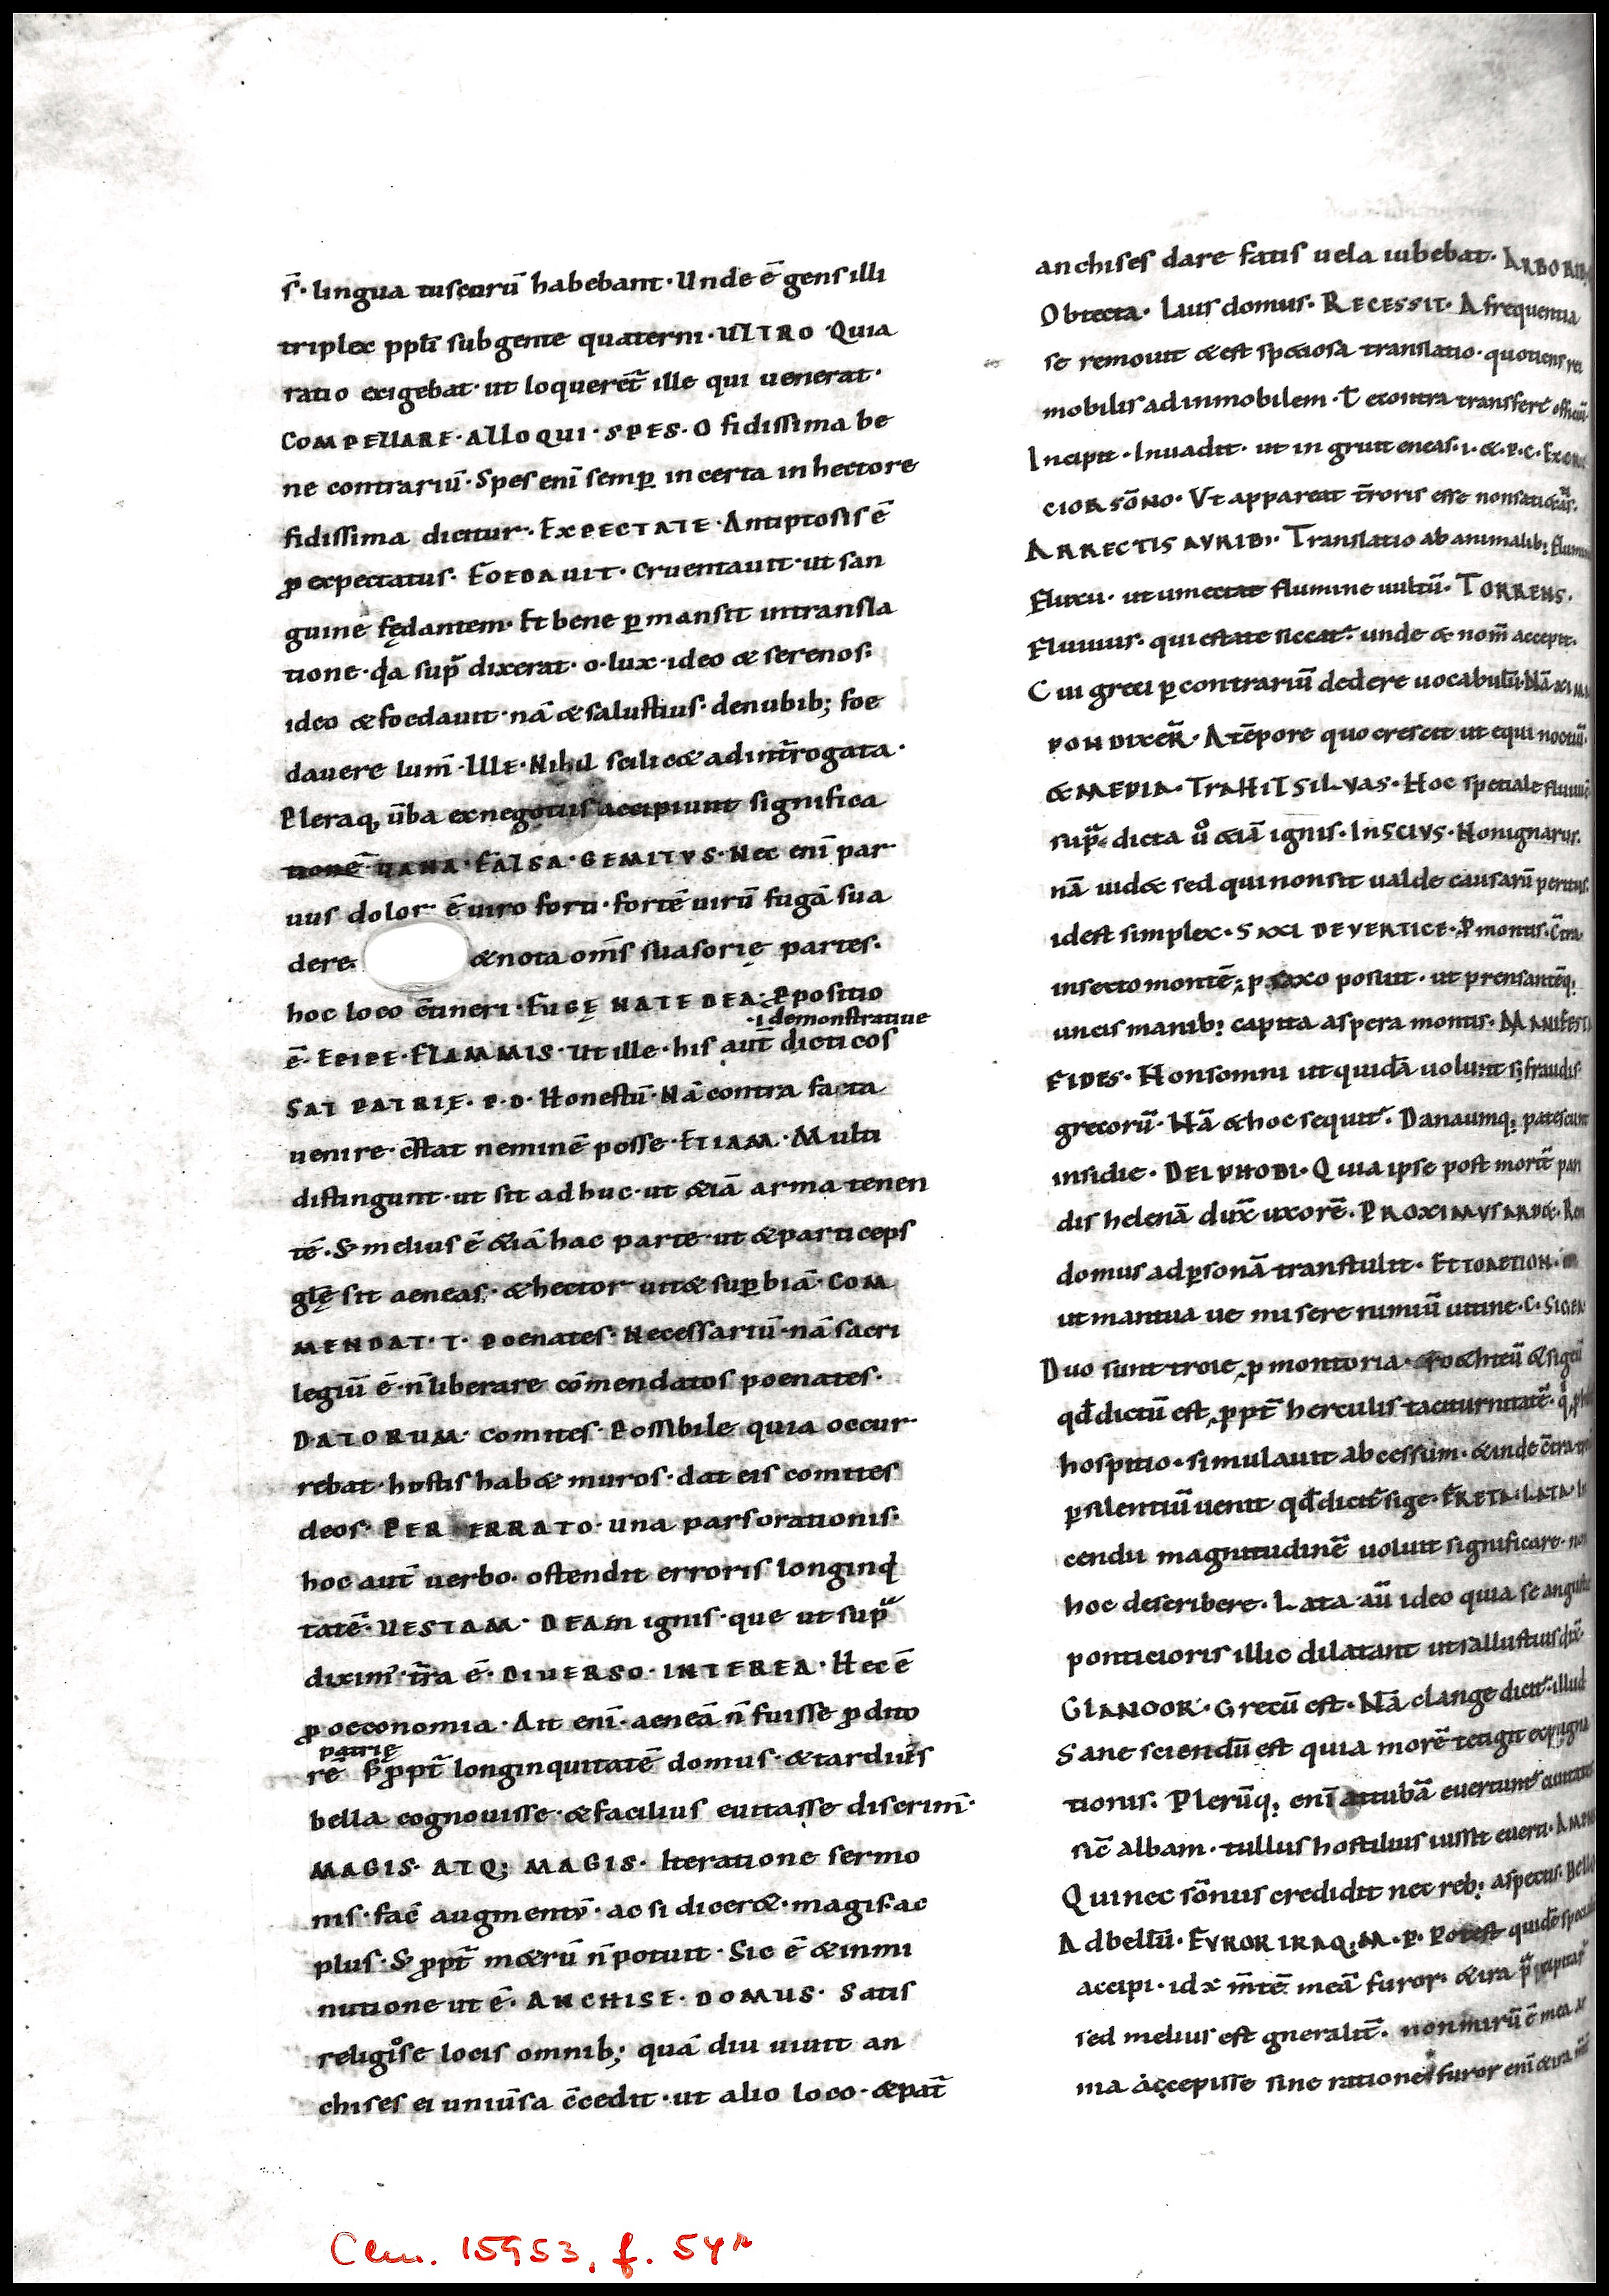 s̄· lingua tuscorū habebant· Unde ē gens illi
triplex ppl̄i sub gente quaterni· ULTRO Quia
ratio exigebat· ut loqueret̄ ille qui uenerat·
COMPELLARE· ALLOQUI· SPES· O fidissima be
ne contrariū· Spes enī semꝑ incerta in hectore
fidissima dicitur· EXPECTATE· Antiptosis ē
ꝓ expectatus· FOEDAUIT· Cruentauit· ut san
guine fędantem· Et bene ꝑmansit in transla
tione· qa sup̄ dixerat· o· lux· ideo & serenos·
ideo & foedauit· nā & salustius· denubib; foe
davere lum̄· ILLE· Nihil scilic& ad int̄rogata·
Pleraq, ūba ex negotiis accipiunt significa
tionē· UANA· FALSA· GEMITUS· Nec enī par
uus dolor ē uiro forti· fortē uirū fugā sua
dere· & nota om̄s suasorię partes·
hoc loco c̄tineri· FUGĘ NATE DEA· Ꝓpositio
·i· demonstratiue
ē· ERIPE· FLAMMIS· Ut ille· his aut̄ dicticos
SAT PATRIĘ· P· D· Honestū· Nā contra facta
uenire· c̄stat neminē posse· ETIAM· Multi
distingunt· ut sit adhuc· ut &iā arma tenen
tē· S; melius ē &iā hac parte· ut & particeps
gl̄ę sit aeneas· & hector uit& suꝑbiā· COM
MENDAT· T· Poenates· Necessariū· nā sacri
legiū ē· n̄ liberare cōmendatos poenates·
DATORUM· Comites· Possibile quia occur
rebat· hostis hab& muros· dat eis comites
deos· PERERRATO· una pars orationis·
hoc aut̄ uerbo· ostendit erroris longinq
tatē· UESTAM· DEAm ignis· que ut sup
dixim̄· t̄ra ē· DIUERSO· INTEREA· Hec ē
ꝓ oeconomia· Ait enī· aeneā n̄ fuisse ꝓdito
patrię
rē ꝓpt̄ longinquitatē domus· & tardius
bella cognouisse· & facilius euitasse discrim̄·
MAGIS· ATQ; MAGIS· Iteratione sermo
nis· fac̄ augmentū· ac si dicer&· magis· ac
plus· S; ꝓpt̄ m&rū n̄ potuit· Sic ē & in mi
nutione ut ē· ANCHISE· DOMUS· Satis
religiose locis omnib; quā diu uiuit an
chises ei uniūsa c̄cedit· ut alio loco· & pat̄
anchises dare fatis uela iubebat· ARBORIB;
Obtecta· Luis domus· RECESSIT· A frequentia
se remouit & est speciosa translatio· quotiens rei
mobilis ad inmobilem· t̄ econtra transfert̄ officiū·
Incipit· Inuadit· ut in gruit eneas· i· &· P· C· EXCU
CIOR SŌNO· Ut appareat t̄roris esse non sati&atis·
ARRECTIS AURIB;· Translatio ab animalib;· Flumin
Fluxu· ut umectat flumine uultū· TORRENS·
Fluuius· qui estate siccat̄· unde & nom̄ accepit·
Cui greci ꝑ contrariū dedere uocabulū· Nā
PON dixer̄· A tēpore quo crescit ut equinoctiū·
& MEDIA· TRAHIT SILVAS· Hoc speciale fluuiū
sup̄· dicta u̇ &iā ignis· INSCIUS· Non ignarus·
nā uid& sed qui non sit ualde causarū peritus·
id est simplex· SAXI DE VERTICE· P montis· C̄tra
in secto montē; p saxo posuit· ut prensantēq;
uncis manib; capita aspera montis· MANIFESTA
FIDES· Non somni ut quidā uolunt s; fraudis·
grecorū· Nā & hoc sequit̄· Danaumq; patescunt
insidie· DEIPHOBI· Quia ipse post mortē pari
dis helenā dux̄ uxorē· PROXIMUS ARD&·
domus ad ꝑsonā transtulit·
ut mantua ue misere nimiū uicine· C·
Duo sunt troie, ꝓmontoria· r&heū & sigeū
qd̄ dictū est, ꝓpt̄ herculis taciturnitatē·
hospitio· simulauit abcessum· & inde c̄tra
ꝑ silentiū uenit qd̄ dicit̄ sige· FRETA· LATA·
cendii magnitudinē uoluit significare· non
hoc describere· Lata· aū ideo quia se angustie
ponticioris illic dilatant ut sallustius dic̄·
CLANGOR· Grecū est· Nā clange dicit̄· illud
Sane sciendū est quia morē tetigit expugna
tionis· Plerūq; enī ad tubā euertunt̄ ciuitates
sic̄ albam· tullus hostilius iussit euerti· AMENS
Qui nec sōnus credidit nec reb; aspectis· BELLO
Ad bellū· FUROR IRAQ; M· P· Potest quidē
accipi· id ē m̄tē meā furor· & ira
sed melius est gneralit̄· non mirū ē me a
ma accepisse sine ratione· furor enī & ira
Clm. 15953, f. 54r